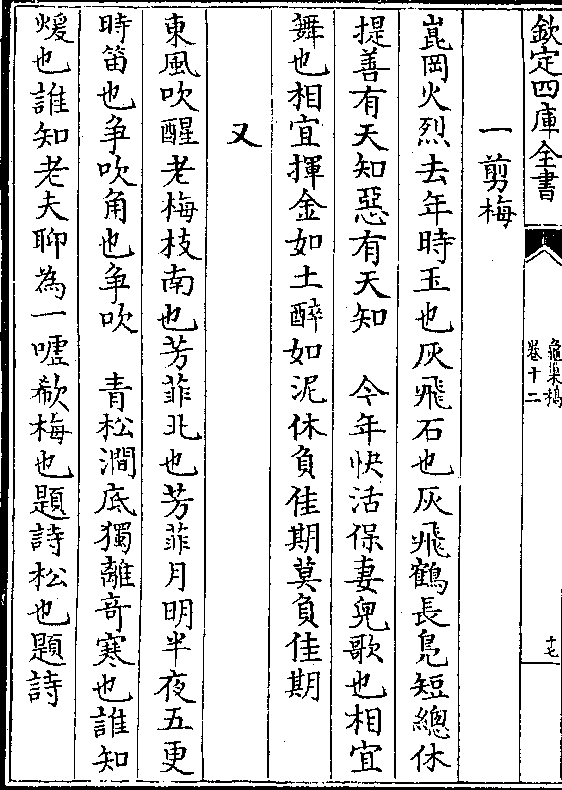 欽定四庫全書
龜巢稿
卷十二
十七
一剪梅
崑岡火烈去年時玉也灰飛石也灰飛鶴長鳧短總休
提善有天知惡有天知　今年快活保妻兒歌也相宜
舞也相宜揮金如土醉如泥休負佳期莫負佳期
又
東風吹醒老梅枝南也芳菲北也芳菲月明半夜五更
時笛也爭吹角也爭吹　青松澗底獨離奇寒也誰知
煖也誰知老夫聊為一噓欷梅也題詩松也題詩